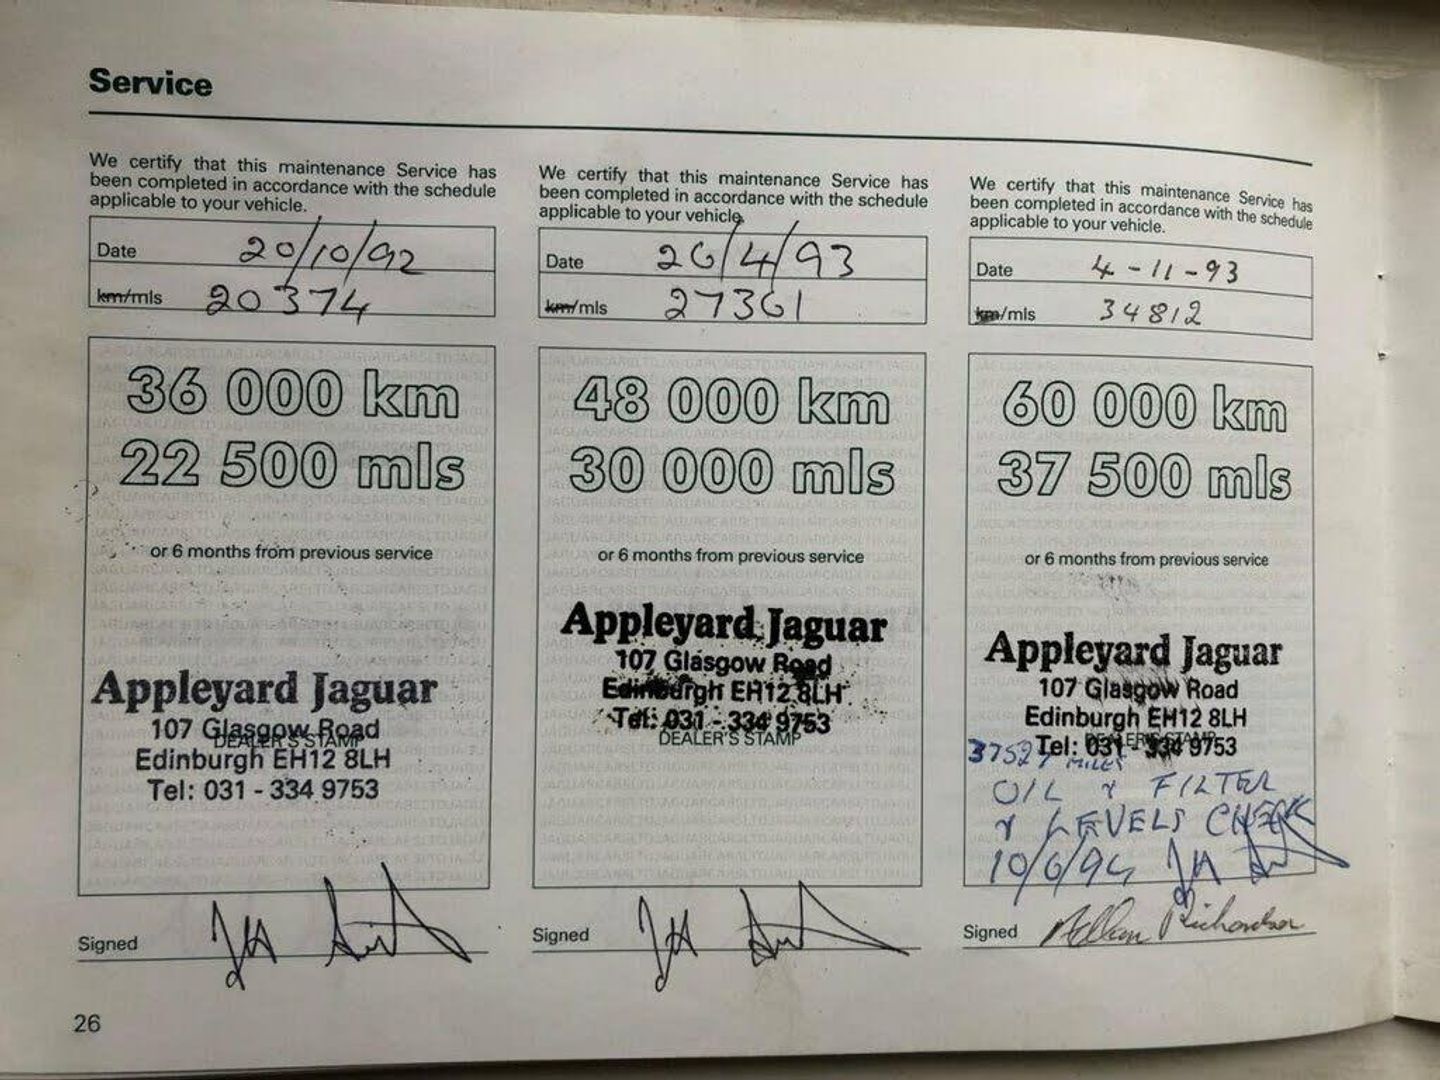 Service
We certify that this maintenance Service has
been completed in accordance with the schedule
applicable to your vehicle.
Date 20/10/92
km/mls 20374
36 000 km
22 500 mls
or 6 months from previous service
Appleyard Jaguar
107 Glasgow Road
DEALER'S STAMP
Edinburgh EH12 8LH
Tel: 031 - 334 9753
Signed
We certify that this maintenance Service has
been completed in accordance with the schedule
applicable to your vehicle.
Date 26/4/93
km/mls 27361
48 000 km
30 000 mls
or 6 months from previous service
Appleyard Jaguar
107 Glasgow Road
Edinburgh EH12 8LH
Tel: 031 - 334 9753
DEALER'S STAMP
Signed
We certify that this maintenance Service has
been completed in accordance with the schedule
applicable to your vehicle.
Date 4-11-93
km/mls 34812
60 000 km
37 500 mls
or 6 months from previous service
Appleyard Jaguar
107 Glasgow Road
Edinburgh EH12 8LH
Tel: 031 - 334 9753
DEALER'S STAMP
MILES
OIL & FILTER
& LEVELS CHECK
10/6/94
Signed Allan Richardson
26